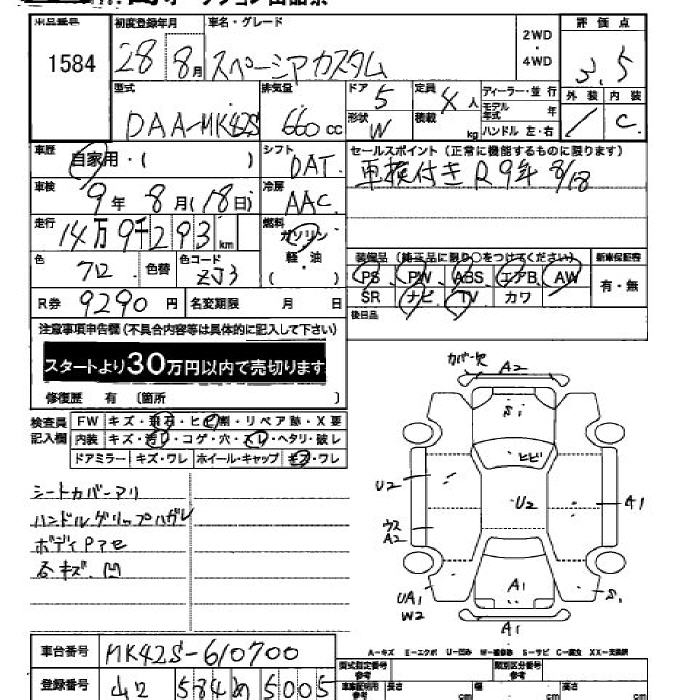 出品番号 初度登録年月 車名・グレード 2WD・4WD 評価点
1584 28 8月 スペーシアカスタム 3.5
型式 排気量 ドア 5 定員 4人 ディーラー・並行 外装 内装
DAA-MK42S 660cc 形状 W 積載 kg モデル年式 年 ハンドル 左・右 / C
車歴 自家用・( ) シフト DAT セールスポイント(正常に機能するものに限ります)
車検 9年 8月(18日) 冷房 AAC 車検付き R9年 8/18
走行 14万9千293km 燃料 ガソリン・軽油 ( )
色 クロ 色替 色コード ZJ3 装備品(純正品に限り○をつけてください) 新車保証書
PS PW ABS エアB AW 有・無
R券 9290円 名変期限 月 日 SR ナビ TV カワ
後日品
注意事項申告欄(不具合内容等は具体的に記入して下さい)
スタートより30万円以内で売切ります
修復歴 有 〔箇所
検査員記入欄 FW キズ・飛石・ヒビ割・リペア跡・X要
内装 キズ・汚レ・コゲ・穴・スレ・ヘタリ・破レ
ドアミラー キズ・ワレ ホイール・キャップ キズ・ワレ
シートカバーアリ
ハンドルグリップハガレ
ボディPアセ
各キズ.凹
カバー欠 A2
S1
ヒビ
U2 U2 A1
ウス A2
UA1 W2 A1 S1
A1
A-キズ E-エクボ U-凹み W-補修跡 S-サビ C-腐食 XX-交換済
車台番号 MK42S-610700 型式指定番号 参考 類別区分番号 参考
登録番号 山口 584 め 5005 車庫証明用 参考 長さ cm 幅 cm 高さ cm